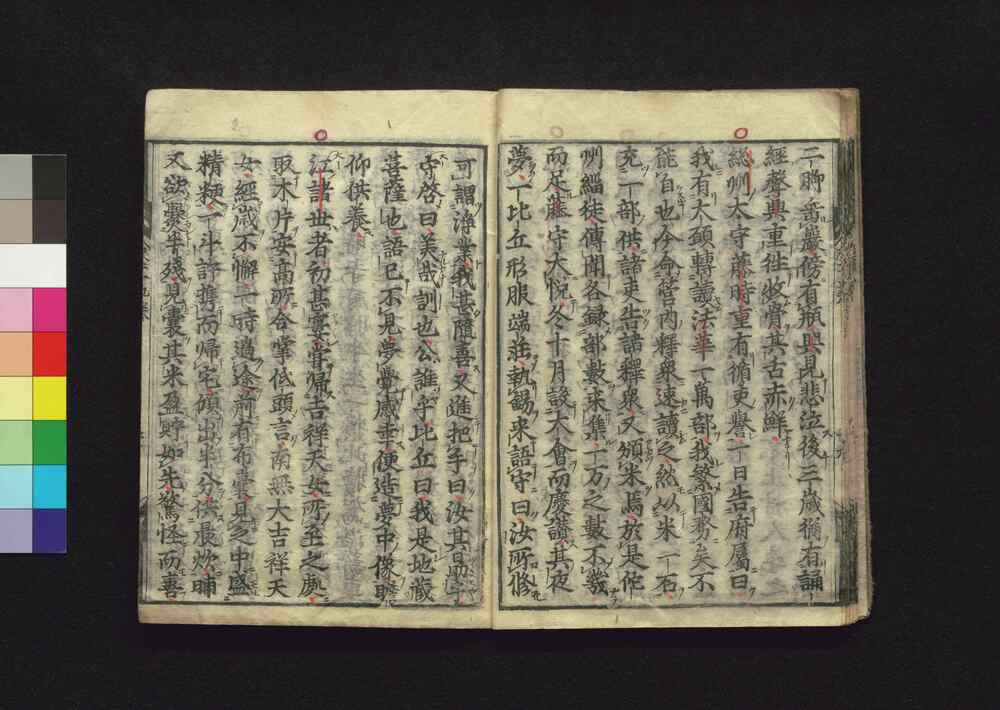 二脚垂巖傍有瓶與見悲泣後三歳猶有誦
經聲典重徃收骨其舌赤鮮
総州太守藤時重有循吏譽一日告府屬曰
我有大願轉讀法華一萬部我繁國務矣不
能自也今令管内釋衆速讀之給以米一石
充一部供諸吏告諸釋衆又頒米焉於是佗
州緇徒傳聞各録部數来集一万之數不幾
而足藤守大悦冬十月設大會而慶讃其夜
夢一比丘形服端荘執錫来語守曰汝所修
可謂淨業我甚隨喜又進把手曰汝其勗
守啓曰美哉訓也公誰乎比丘曰我是地藏
菩薩也語已不見夢覺感泣便造夢中像瞻
仰供養
江諸世者初甚寠甞帰吉祥天女所至之處
取木片安高所合掌低頭言南無大吉祥天
女經歳不懈一時過途前有布嚢見之中盛
精粳一斗許携而帰宅傾出半分供晨炊晡
又欲爨半残見嚢其米盈貯如先驚怪而喜